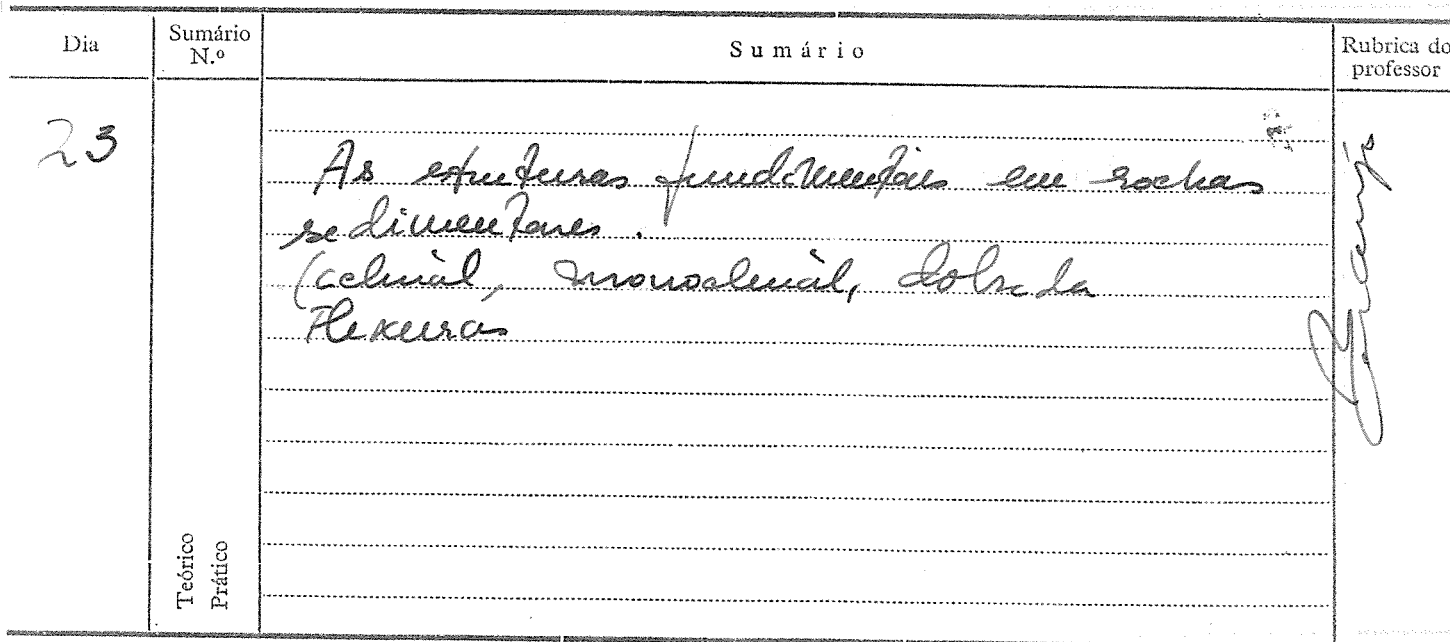 Dia
Sumário N.º
Sumário
Rubrica do professor
23
As estruturas fundamentais em rochas
sedimentares.
(aclinal, monoclinal, dobrada
Flexuras
Teórico
Prático